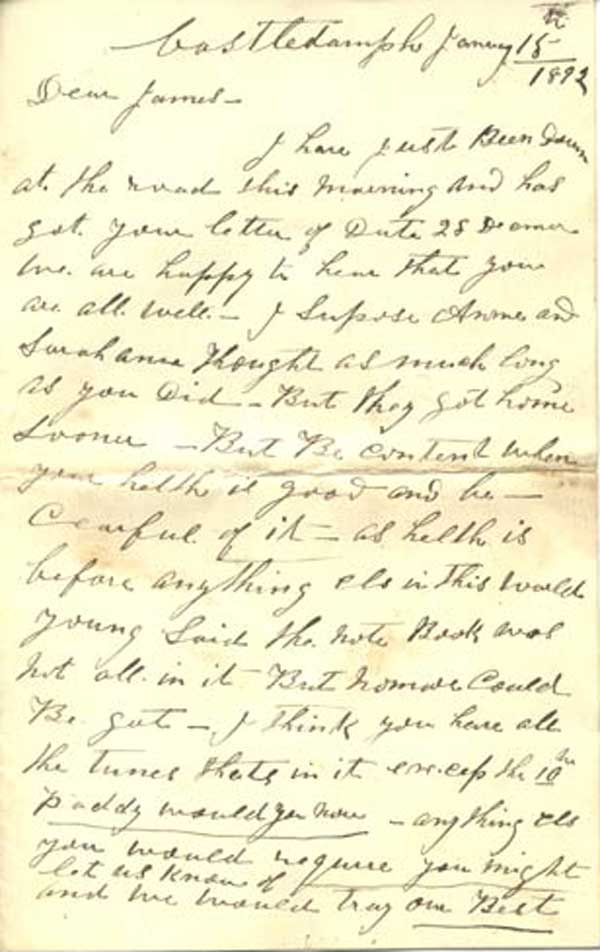 Castledamph January 15th
1892
Dear James -
I have just Been down
at the road this morning and has
got your letter of Date 28 Decmr
we are happy to hear that you
are all well - I Supose Annie and
Sarahann thought as much long
as you Did - But they got home
Sooner - But Be content when
your helth is good and be -
Cearful of it - as helth is
before anything els in this World
young Said the note Book was
not all in it But nomore Could
Be got - I think you have all
the tunes thats in it excep the 10th
Paddy would you now - anything els
you would require you might
let us know of
and we would tray our Best